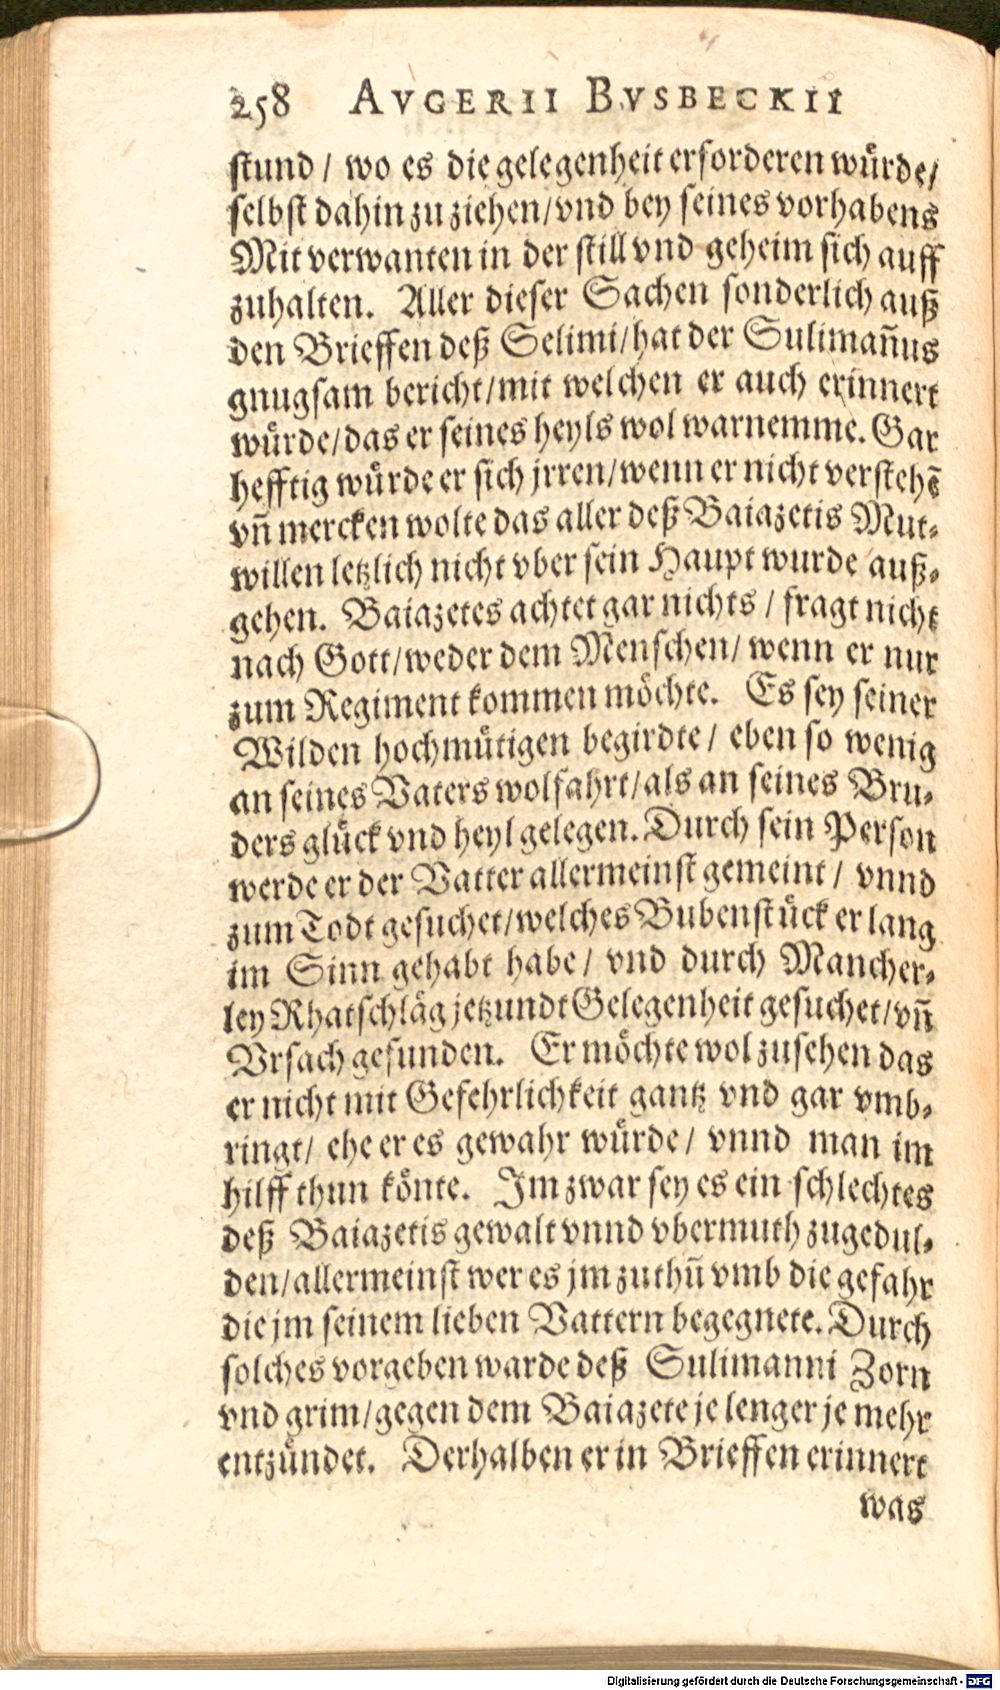 258 AVGERII BVSBECKII
stund / wo es die gelegenheit erforderen würde/
selbst dahin zu ziehen/vnd bey seines vorhabens
Mitverwanten in der still vnd geheim sich auff
zuhalten. Aller dieser Sachen sonderlich auß
den Brieffen deß Selimi/hat der Sulimañus
gnugsam bericht/mit welchen er auch erinnert
würde/das er seines heyls wol warnemme. Gar
hefftig würde er sich jrren/wenn er nicht verstehē
vñ mercken wolte das aller deß Baiazetis Mut-
willen letzlich nicht vber sein Haupt wurde auß-
gehen. Baiazetes achtet gar nichts / fragt nicht
nach Gott/weder dem Menschen/ wenn er nur
zum Regiment kommen möchte. Es sey seiner
Wilden hochmütigen begirdte/ eben so wenig
an seines Vaters wolfahrt/als an seines Bru-
ders glück vnd heyl gelegen. Durch sein Person
werde er der Vatter allermeinst gemeint / vnnd
zum Todt gesuchet/welches Bubenstück er lang
im Sinn gehabt habe/ vnd durch Mancher-
ley Rhatschläg jetzundt Gelegenheit gesuchet/vñ
Vrsach gefunden. Er möchte wol zusehen das
er nicht mit Gefehrlichkeit gantz vnd gar vmb-
ringt/ ehe er es gewahr würde/ vnnd man im
hilff thun könte. Im zwar sey es ein schlechtes
deß Baiazetis gewalt vnnd vbermuth zugedul-
den/allermeinst wer es jm zuthū vmb die gefahr
die jm seinem lieben Vattern begegnete. Durch
solches vorgeben warde deß Sulimanni Zorn
vnd grim/gegen dem Baiazete je lenger je mehr
entzündet. Derhalben er in Brieffen erinnert
was
Digitalisierung gefördert durch die Deutsche Forschungsgemeinschaft - DFG